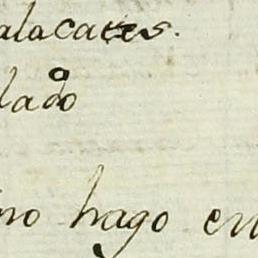 alacates.
lado
no hago en